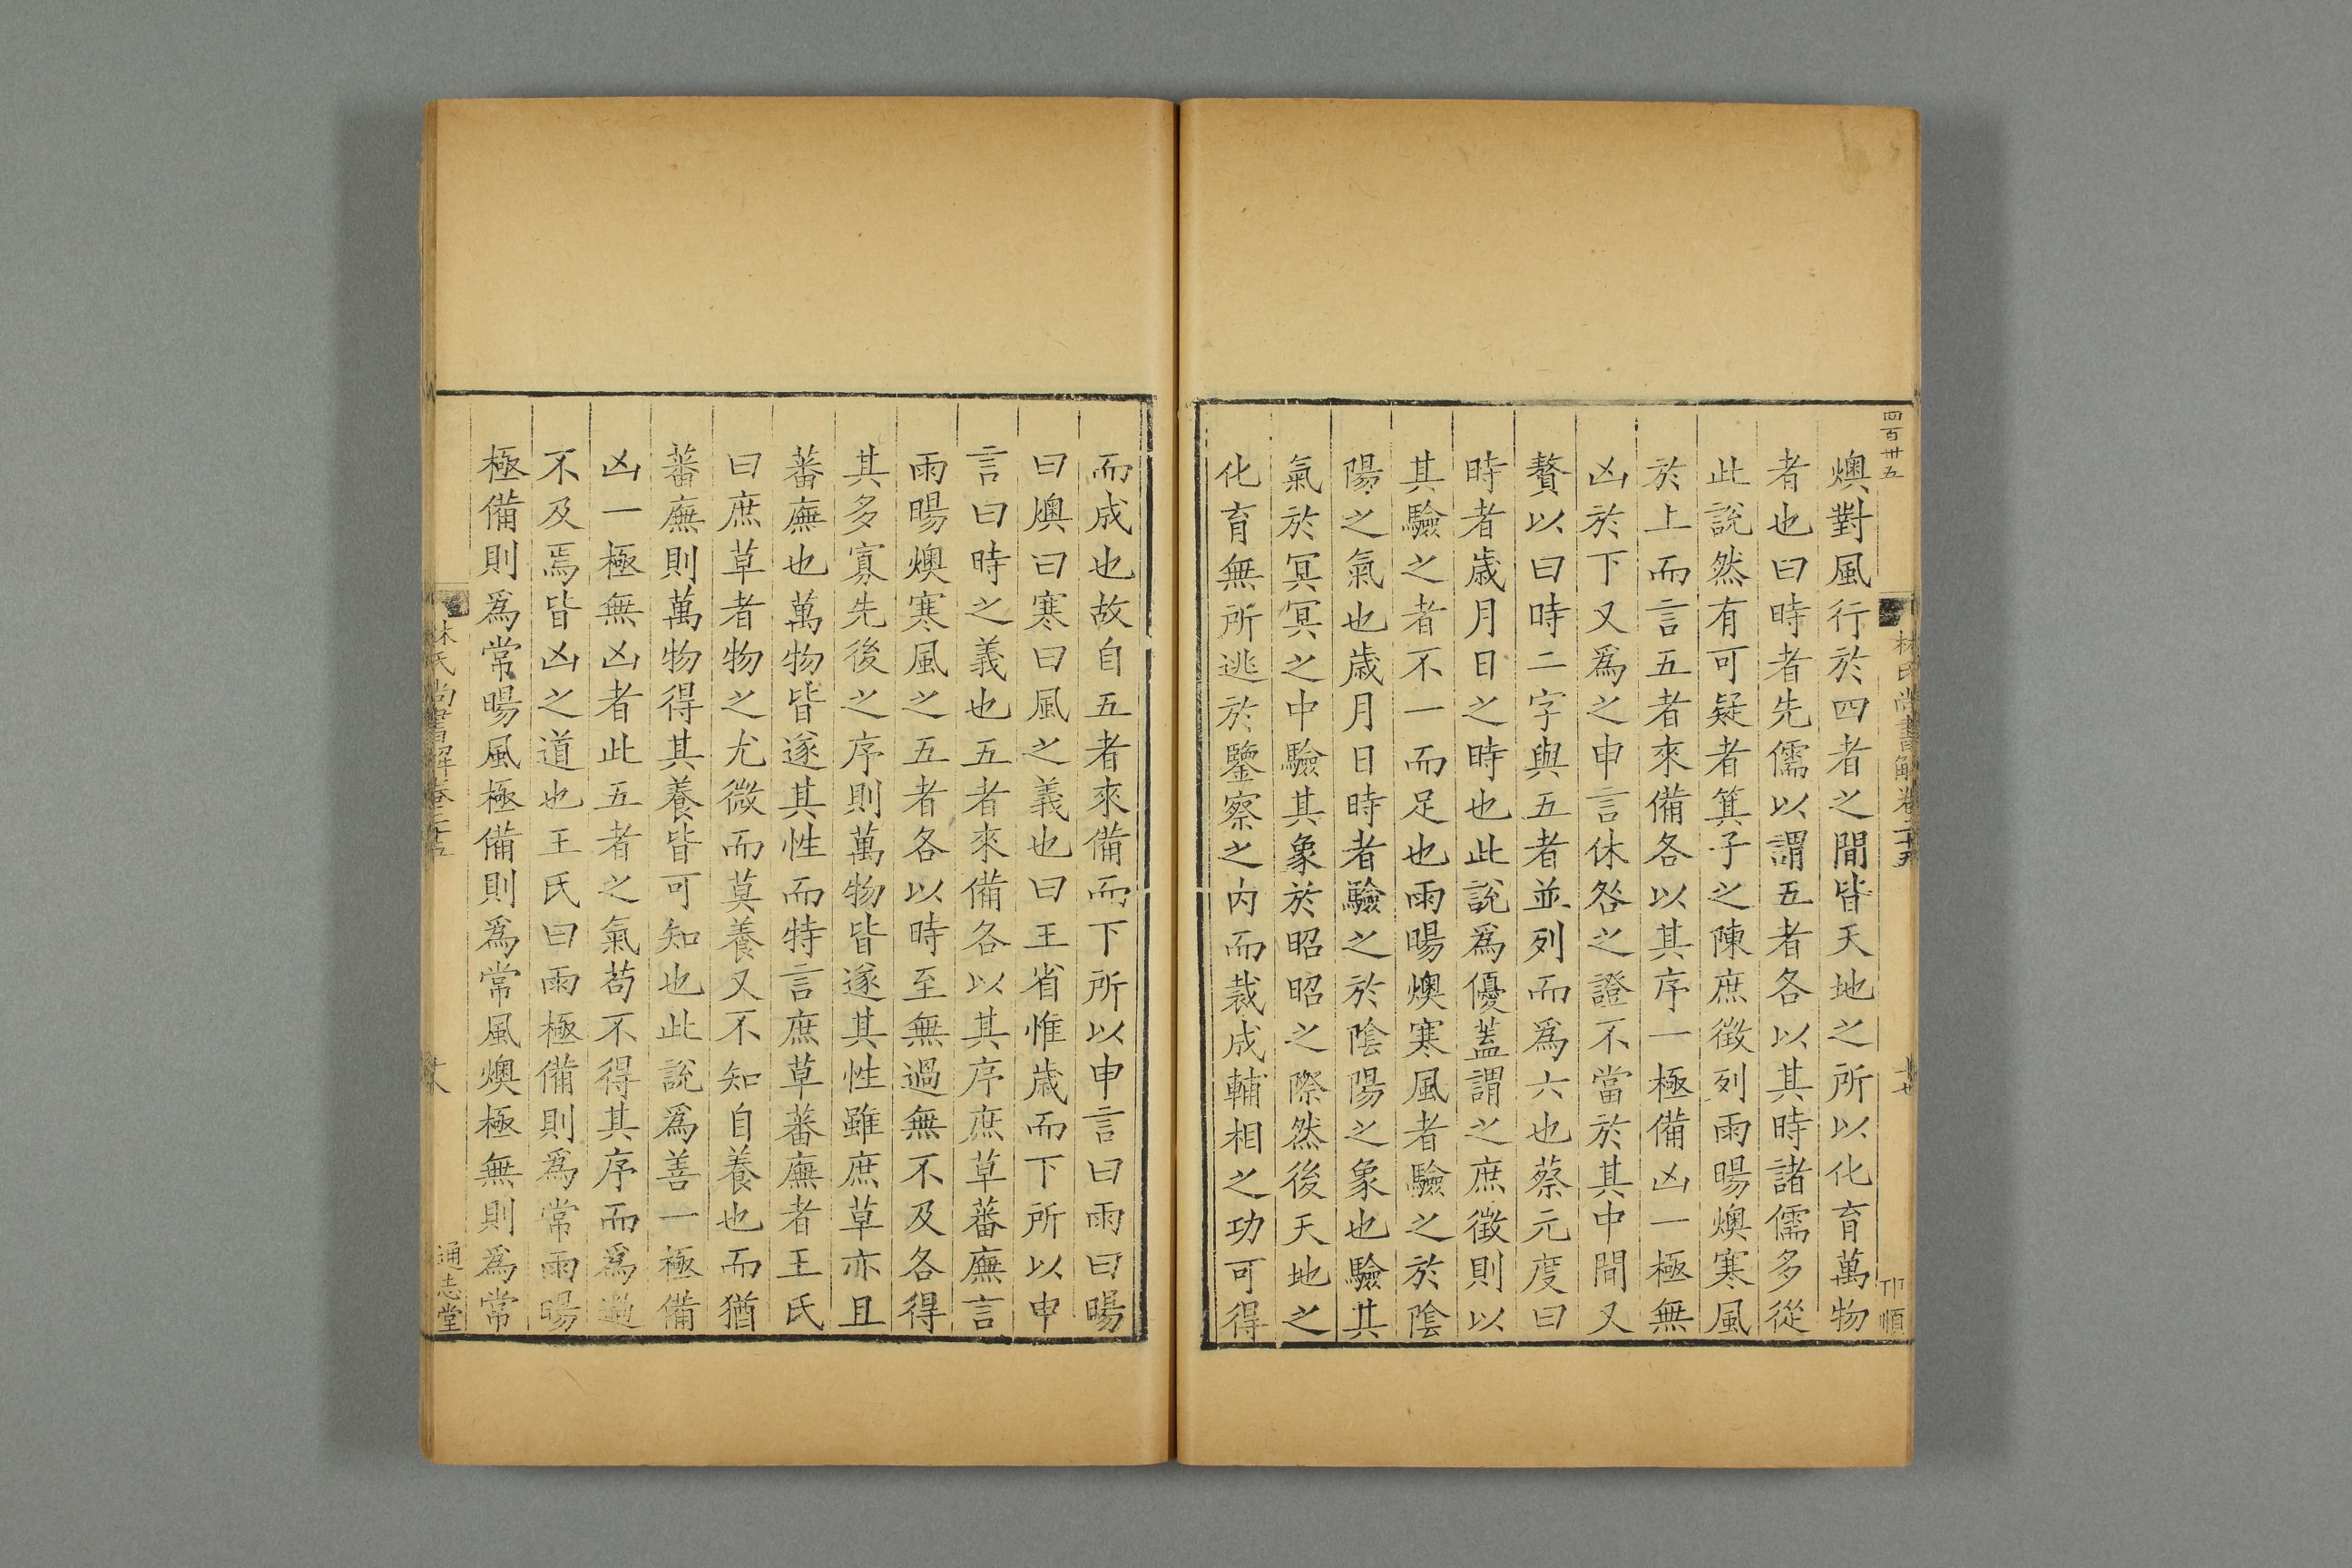 四百卅五
林氏尚書解卷二十五
順
燠對風行於四者之間皆天地之所以化育萬物
者也曰時者先儒以謂五者各以其時諸儒多從
此說然有可疑者箕子之陳庶徵列雨暘燠寒風
於上而言五者來備各以其序一極備凶一極無
凶於下又爲之申言休咎之證不當於其中間又
贅以曰時二字與五者並列而爲六也蔡元度曰
時者歲月日之時也此說爲優蓋謂之庶徵則以
其驗之者不一而足也雨暘燠寒風者驗之於陰
陽之氣也歲月日時者驗之於陰陽之象也驗其
氣於冥冥之中驗其象於昭昭之際然後天地之
化育無所逃於鑒察之内而裁成輔相之功可得
而成也故自五者來備而下所以申言曰雨曰暘
曰燠曰寒曰風之義也曰王省惟歲而下所以申
言曰時之義也五者來備各以其序庶草蕃廡言
雨暘燠寒風之五者各以時至無過無不及各得
其多寡先後之序則萬物皆遂其性雖庶草亦且
蕃廡也萬物皆遂其性而特言庶草蕃廡者王氏
曰庶草者物之尤微而莫養又不知自養也而猶
蕃廡則萬物得其養皆可知也此說爲善一極備
凶一極無凶者此五者之氣苟不得其序而爲過
不及焉皆凶之道也王氏曰雨極備則爲常雨暘
極備則爲常暘風極備則爲常風燠極無則爲常
林氏尚書解卷二十五
通志堂